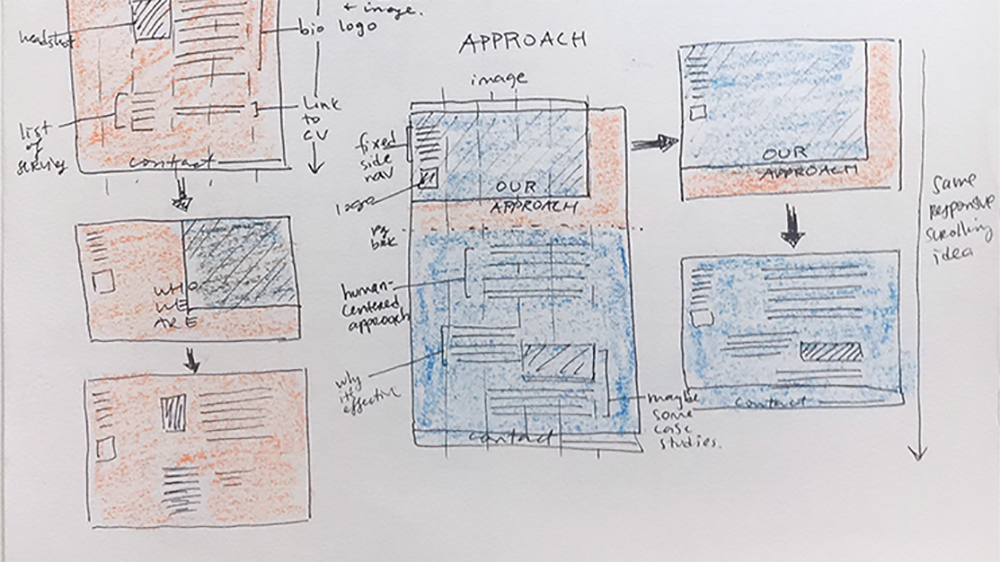 headshot
+ image.
bio logo
list
of
Link
to
CV
contact
WHO
WE
ARE
APPROACH
image
fixed
side
nav
logo
OUR
APPROACH
human-
centered
approach
why
its
effective
maybe
some
case
studies.
contact
OUR
APPROACH
contact
same
responsive
scrolling
idea